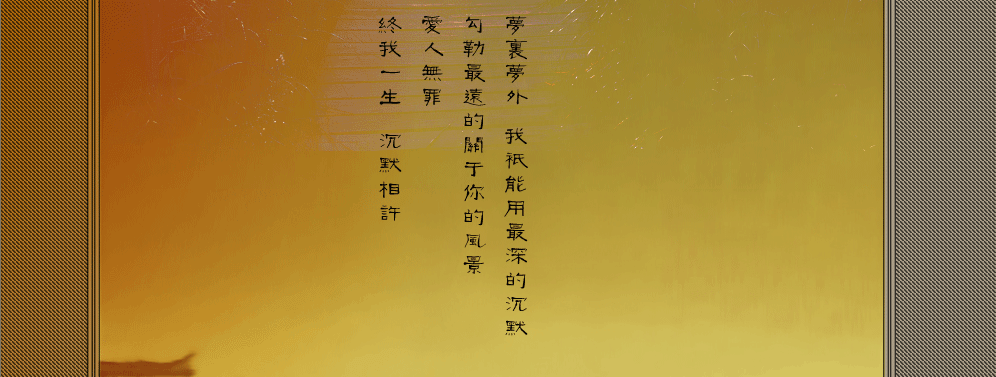 夢裏夢外 我祇能用最深的沉默
勾勒最遠的關于你的風景
愛人無罪
終我一生 沉默相許